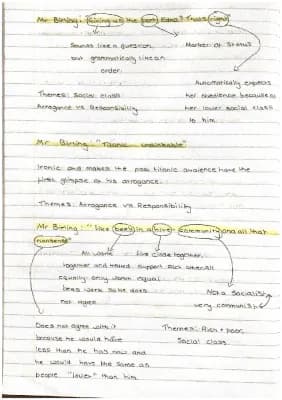 Mr Birling: "Giving us the port Edna? That's right"
Sounds like a question,
but grammatically like an
order.
Marker of Status
Automatically expects
her obedience because of
her lower social class
to him.
Themes: Social class
Arrogance vs Responsibility
Mr Birling "Titanic unsinkable"
Ironic and makes the post titanic audience have the
first glimpse of his arrogance.
Themes: Arrogance vs Responsibility
Mr Birling: "like bees in a hive - community and all that
nonsense"
All work
together and treated
equally only worth equal
bees work so he does
not agree
live close together,
support each other. All
Not a Socialist,
very community
Does not agree with it
because he would have
less than he has now and
he would have the same as
people "lower" than him.
Themes: Rich + poor,
Social class.